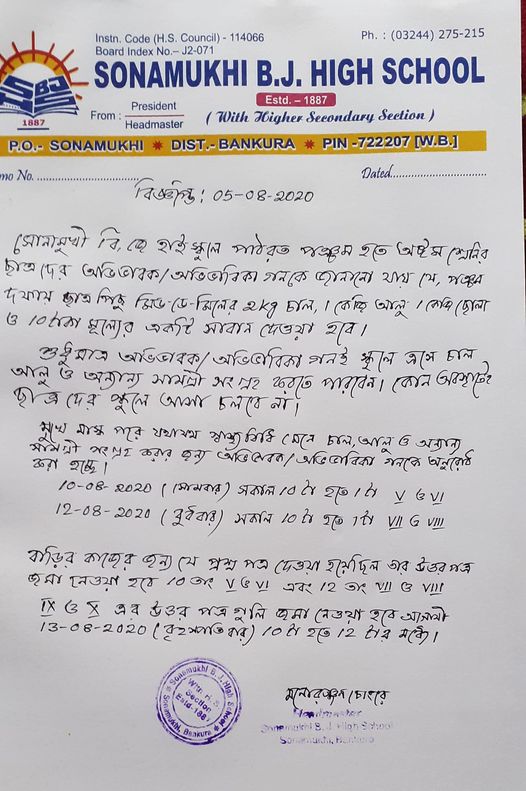 Instn. Code (H.S. Council) - 114066
Ph. : (03244) 275-215
Board Index No.– J2-071
SONAMUKHI B.J. HIGH SCHOOL
Estd. – 1887
From : President
Headmaster
( With Higher Secondary Section )
1887
P.O.- SONAMUKHI ✷ DIST.- BANKURA ✷ PIN -722207 [W.B.]
mo No.
Dated
বিজ্ঞপ্তি : 05-08-2020
সোনামুখী বি. জে হাইস্কুলে পাঠরত পঞ্চম হতে অষ্টম শ্রেনির
ছাত্রদের অভিভাবক/অভিভাবিকা গনকে জানানো যায় যে, পঞ্চম
দফায় ছাত্র পিছু মিড-ডে-মিলের 2kg চাল, 1 কেজি আলু 1 কেজি ছোলা
ও 10 টাকা মূল্যের একটি সাবান দেওয়া হবে।
শুধুমাত্র অভিভাবক/অভিভাবিকা গনই স্কুলে এসে চাল
আলু ও অন্যান্য সামগ্রী সংগ্রহ করতে পারবেন। কোন অবস্থাতেই
ছাত্রদের স্কুলে আসা চলবে না।
মুখে মাস্ক পরে যথাযথ স্বাস্থ্যবিধি মেনে চাল, আলু ও অন্যান্য
সামগ্রী সংগ্রহ করার জন্য অভিভাবক/অভিভাবিকা গনকে অনুরোধ
করা হচ্ছে।
10-08-2020 (সোমবার) সকাল 10 টা হতে 1 টা V ও VI
12-08-2020 (বুধবার) সকাল 10 টা হতে 1 টা VII ও VIII
বাড়ির কাজের জন্য যে প্রশ্ন পত্র দেওয়া হয়েছিল তার উত্তর পত্র
জমা নেওয়া হবে 10 তাং V ও VI এবং 12 তাং VII ও VIII
IX ও X এর উত্তর পত্র গুলি জমা নেওয়া হবে আগামী
13-08-2020 (বৃহস্পতিবার) 10 টা হতে 12 টার মধ্যে।
Sonamukhi B. J. High School
With H. S.
Section
Estd-1887
Sonamukhi, Bankura
মনোরঞ্জন চোংরে
Headmaster
Sonamukhi B. J. High School
Sonamukhi, Bankura